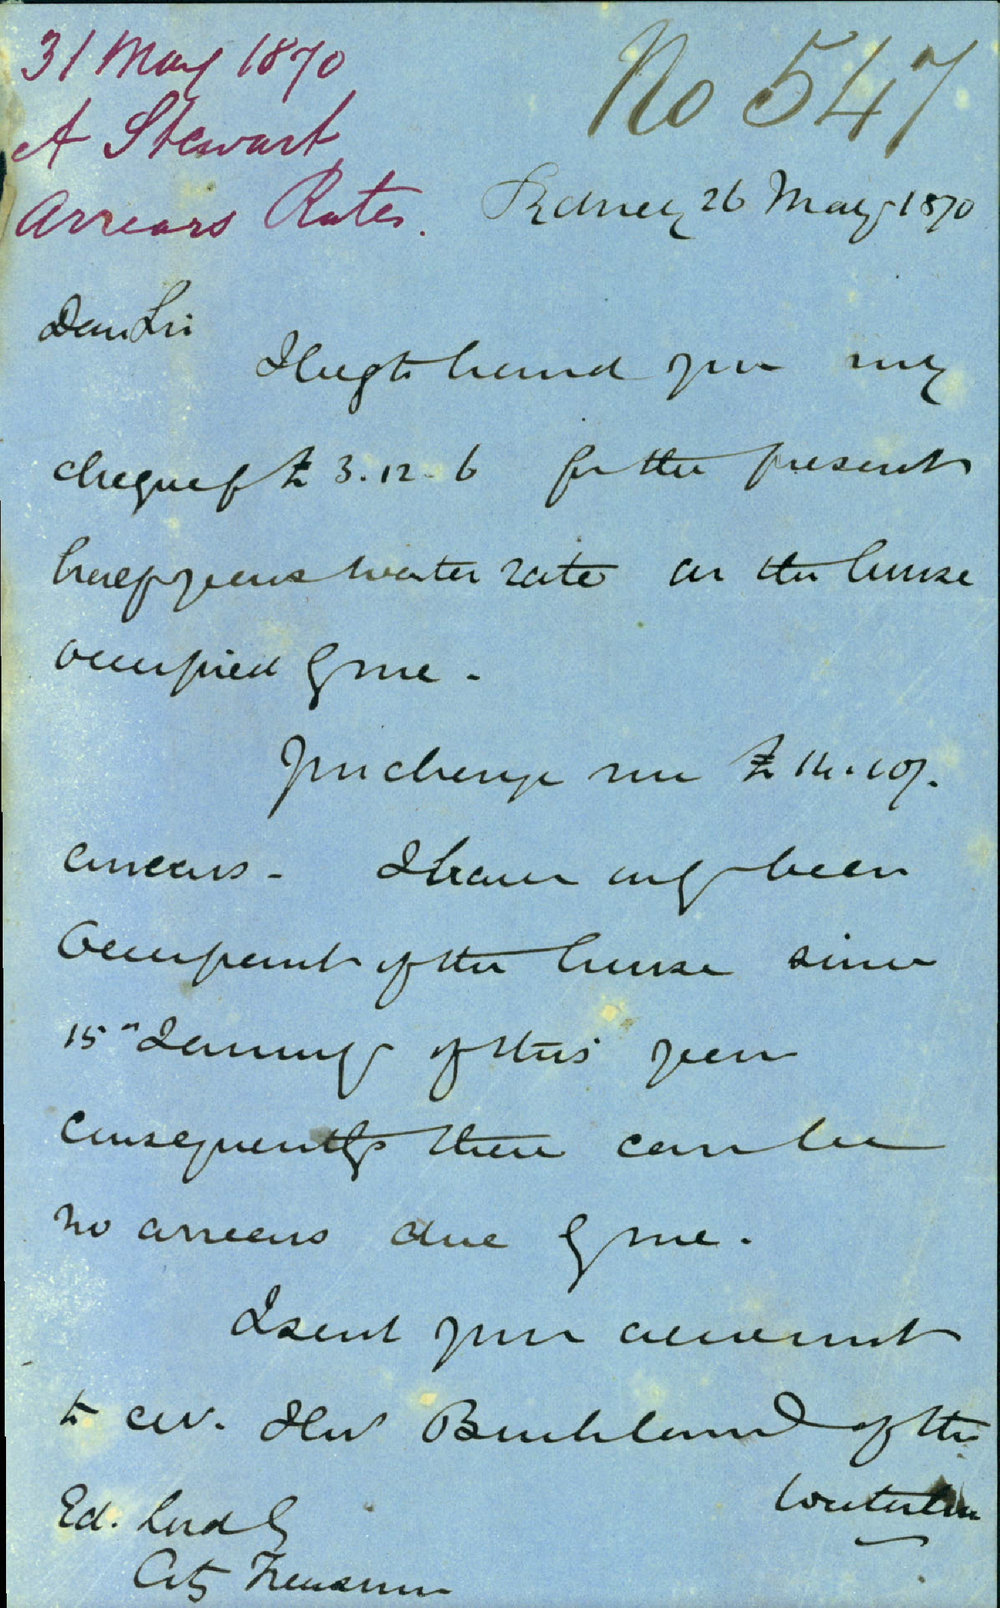 31 May 1870
A Stewart
Arrears Rates.
No 547
Sydney 26 May 1870
Dear Sir
I beg to hand you my
cheque of £3.12.6 for the present
half years water rate on the house
occupied by me.
You charge me £14.10/.
arrears. I have only been
Occupant of the house since
15th January of this year
consequently there can be
no arrears due by me.
I sent your account
to Thos Buckland of the
Ed. Lord Esq
City Treasurer